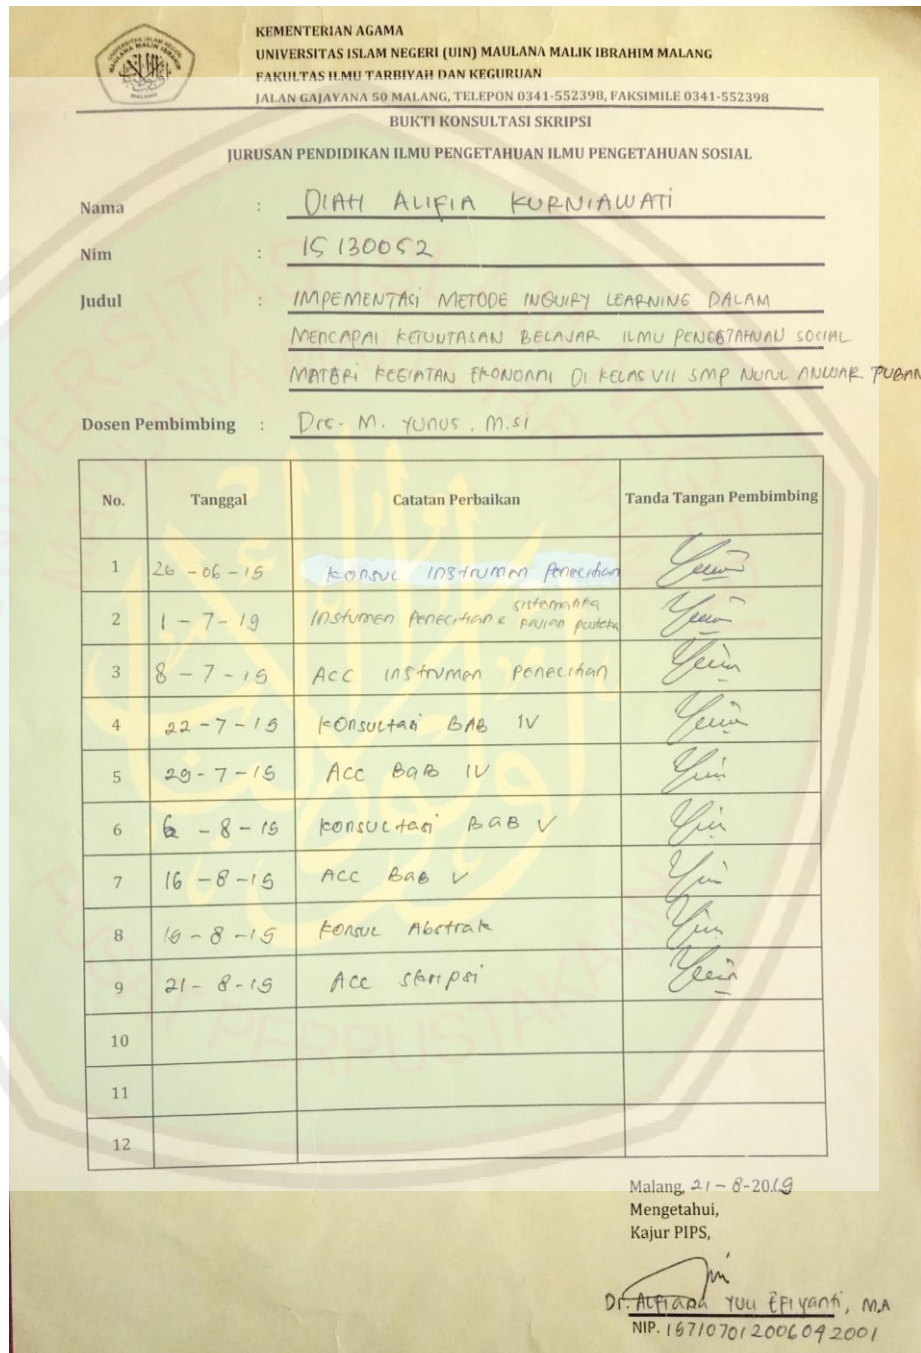 KEMENTERIAN AGAMA
UNIVERSITAS ISLAM NEGERI (UIN) MAULANA MALIK IBRAHIM MALANG
FAKULTAS ILMU TARBIYAH DAN KEGURUAN
JALAN GAJAYANA 50 MALANG, TELEPON 0341-552398, FAKSIMILE 0341-552398
BUKTI KONSULTASI SKRIPSI
JURUSAN PENDIDIKAN ILMU PENGETAHUAN ILMU PENGETAHUAN SOSIAL
Nama : DIAH ALIFIA KURNIAWATI
Nim : 15130052
Judul : IMPEMENTASI METODE INQUIRY LEARNING DALAM
MENCAPAI KETUNTASAN BELAJAR ILMU PENGETAHUAN SOCIAL
MATERI KEGIATAN EKONOMI DI KELAS VII SMP NURUL ANWAR TUBAN
Dosen Pembimbing : Drs. M. YUNUS, M.Si
No. Tanggal Catatan Perbaikan Tanda Tangan Pembimbing
1 26-06-19 Konsul Instrumen Penelitian
2 1-7-19 Instumen Penelitian & sistematika kajian pustaka
3 8-7-19 Acc instrumen Penelitian
4 22-7-19 Konsultasi BAB IV
5 29-7-19 Acc BaB IV
6 6-8-19 Konsultasi BaB V
7 16-8-19 Acc BaB V
8 19-8-19 Konsul Abstrak
9 21-8-19 Acc Skripsi
10
11
12
Malang, 21-8-2019
Mengetahui,
Kajur PIPS,
Dr. Alfiana Yuli Efiyanti, MA
NIP. 197107012006042001